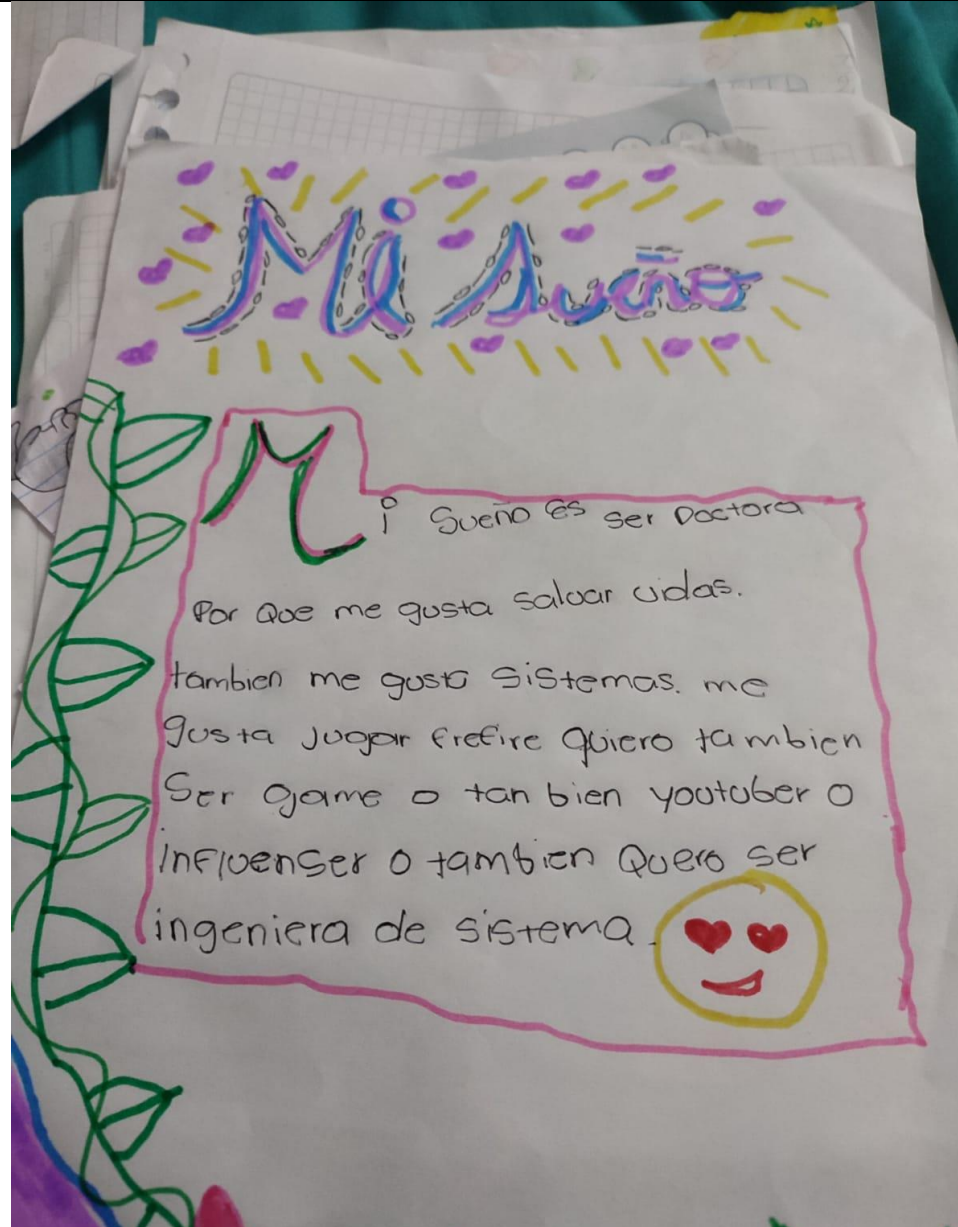 Mi Sueño
Mi Sueño es ser Doctora
Por Que me gusta salvar vidas.
tambien me gusta Sistemas. me
gusta Jugar frefire quiero tambien
Ser game o tan bien youtuber o
influenser o tambien Quero ser
ingeniera de sistema.